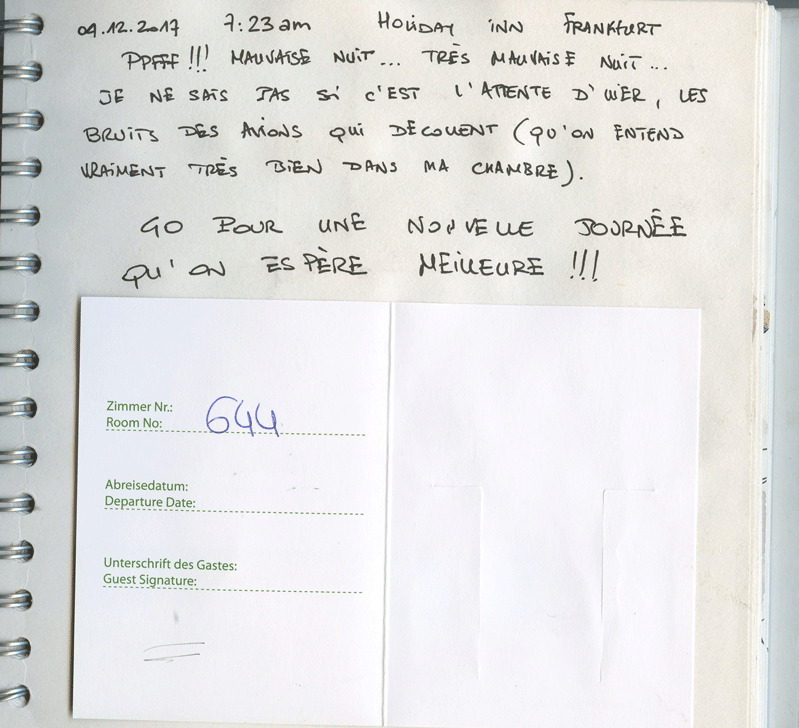 09.12.2017 7:23am HOLIDAY INN FRANKFURT
PPFFF!!! MAUVAISE NUIT... TRÈS MAUVAISE NUIT...
JE NE SAIS PAS SI C'EST L'ATTENTE D'HIER, LES
BRUITS DES AVIONS QUI DÉCOLLENT (QU'ON ENTEND
VRAIMENT TRÈS BIEN DANS MA CHAMBRE).
GO POUR UNE NOUVELLE JOURNÉE
QU'ON ESPÈRE MEILLEURE !!!
Zimmer Nr.:
Room No: 644
Abreisedatum:
Departure Date:
Unterschrift des Gastes:
Guest Signature: